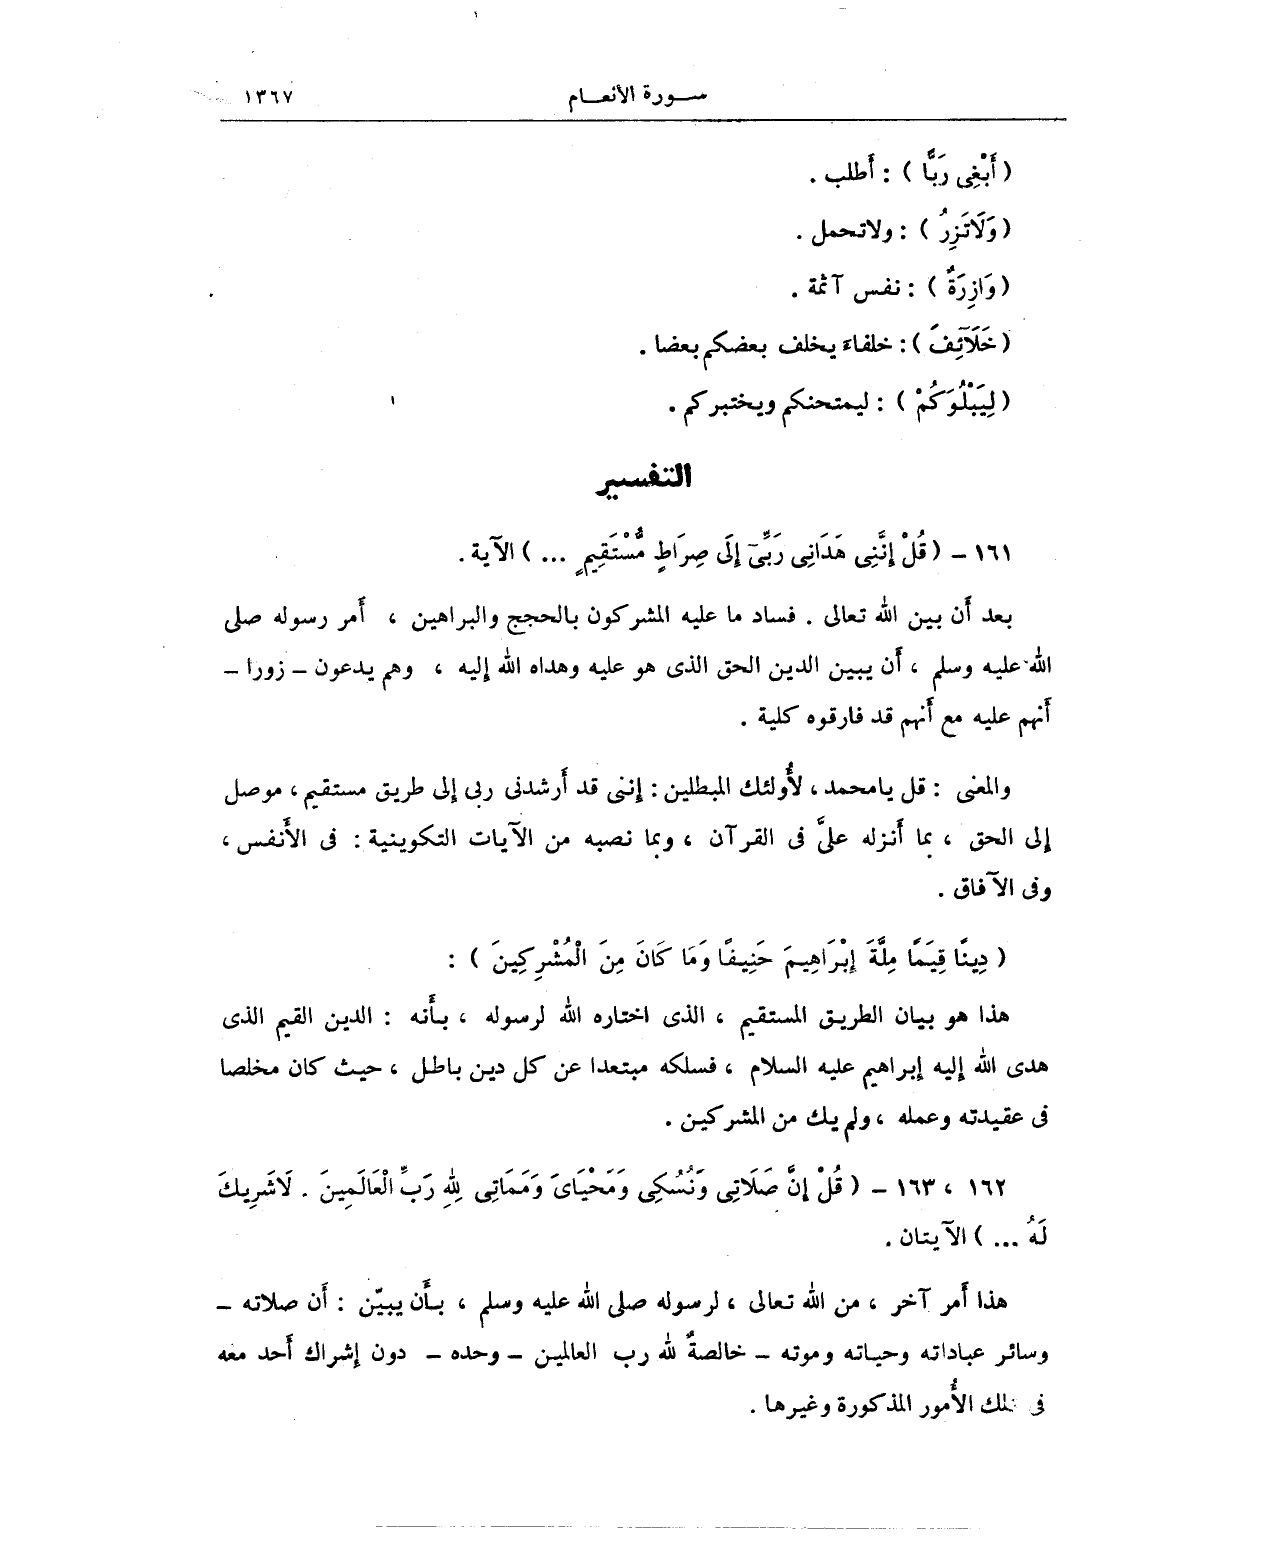 سورة الأنعام ١٣٦٧
( أَبْغِى رَبًّا ) : أطلب .
( وَلَا تَزِرُ ) : ولاتحمل .
( وَازِرَةٌ ) : نفس آثمة .
( خَلَآئِفَ ) : خلفاءَ يخلف بعضكم بعضا .
( لِيَبْلُوَكُمْ ) : ليمتحنكم ويختبركم .
التفسير
١٦١ – ( قُلْ إِنَّنِى هَدَانِى رَبِّىٓ إِلَى صِرَاطٍ مُّسْتَقِيمٍ ... ) الآية .
بعد أَن بين الله تعالى . فساد ما عليه المشركون بالحجج والبراهين ، أَمر رسوله صلى
الله عليه وسلم ، أَن يبين الدين الحق الذى هو عليه وهداه الله إليه ، وهم يدعون – زورا –
أَنهم عليه مع أَنهم قد فارقوه كلية .
والمعنى : قل يامحمد ، لأُولئك المبطلين : إننى قد أَرشدنى ربى إلى طريق مستقيم ، موصل
إلى الحق ، بما أَنزله علىَّ فى القرآن ، وبما نصبه من الآيات التكوينية : فى الأَنفس ،
وفى الآفاق .
( دِينًا قِيَمًا مِلَّةَ إِبْرَاهِيمَ حَنِيفًا وَمَا كَانَ مِنَ الْمُشْرِكِينَ ) :
هذا هو بيان الطريق المستقيم ، الذى اختاره الله لرسوله ، بأَنه : الدين القيم الذى
هدى الله إليه إبراهيم عليه السلام ، فسلكه مبتعدا عن كل دين باطل ، حيث كان مخلصا
فى عقيدته وعمله ، ولم يك من المشركين .
١٦٢ ، ١٦٣ – ( قُلْ إِنَّ صَلَاتِى وَنُسُكِى وَمَحْيَاىَ وَمَمَاتِى لِلهِ رَبِّ الْعَالَمِينَ . لَا شَرِيكَ
لَهُ ... ) الآيتان .
هذا أَمر آخر ، من الله تعالى ، لرسوله صلى الله عليه وسلم ، بأَن يبيّن : أَن صلاته –
وسائر عباداته وحياته وموته – خالصةٌ لله رب العالمين – وحده – دون إشراك أَحد معه
فى تلك الأُمور المذكورة وغيرها .